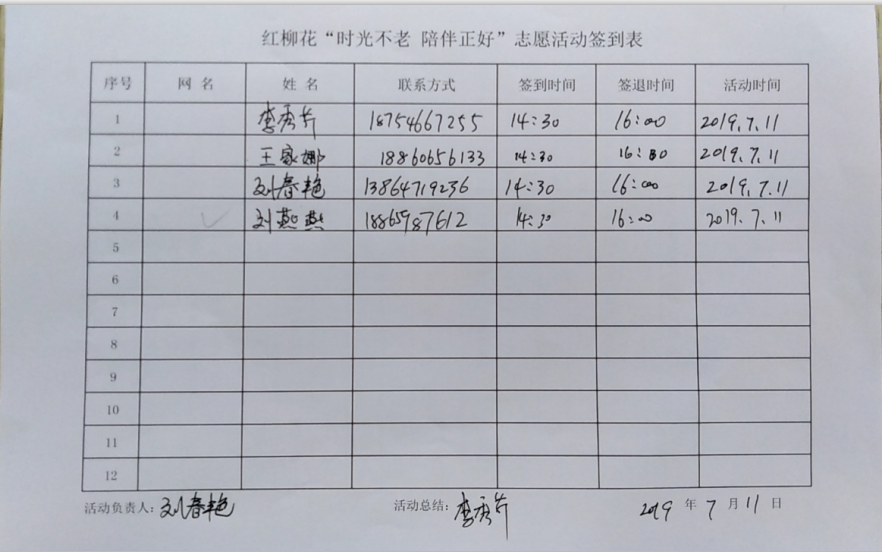 红柳花“时光不老 陪伴正好”志愿活动签到表
序号 网名 姓名 联系方式 签到时间 签退时间 活动时间
1 李秀芹 18754667255 14:30 16:00 2019.7.11
2 王家娜 18860656133 14:30 16:00 2019.7.11
3 刘春艳 13864719236 14:30 16:00 2019.7.11
4 刘燕燕 18865987612 14:30 16:00 2019.7.11
5
6
7
8
9
10
11
12
活动负责人:刘春艳 活动总结:李秀芹 2019年7月11日